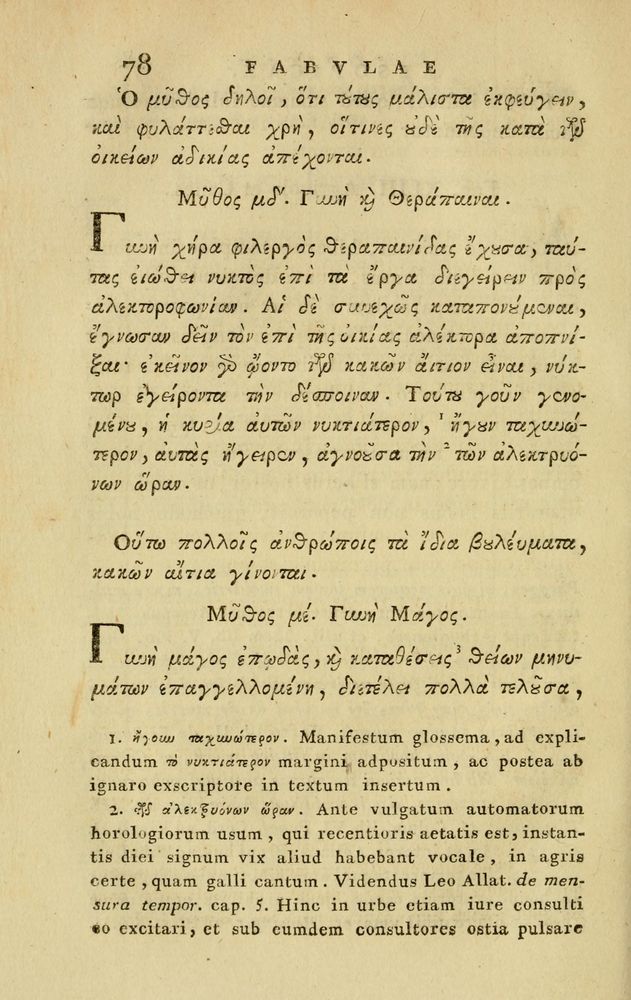 78 FABVLAE
Ὁ μῦθος δηλοῖ, ὅτι τούτους μάλιστα ἐκφεύγειν,
καὶ φυλάττεσθαι χρὴ, οἵτινες οὐδὲ τῆς κατὰ τῶν
οἰκείων ἀδικίας ἀπέχονται.
Μῦθος μδ'. Γυνὴ καὶ Θεράπαιναι.
Γυνὴ χήρα φιλεργὸς θεραπαινίδας ἔχουσα, ταύ-
τας εἰώθει νυκτὸς ἐπὶ τὰ ἔργα διεγείρειν πρὸς
ἀλεκτοροφωνίαν. Αἱ δὲ συνεχῶς καταπονούμεναι,
ἔγνωσαν δεῖν τὸν ἐπὶ τῆς οἰκίας ἀλέκτορα ἀποπνί-
ξαι· ἐκεῖνον γὰρ ᾤοντο τῶν κακῶν αἴτιον εἶναι, νύκ-
τωρ ἐγείροντα τὴν δέσποιναν. Τούτου γοῦν γενο-
μένου, ἡ κυρία αὐτῶν νυκτιάτερον, ¹ ἤγουν ταχινώ-
τερον, αὐτὰς ἤγειρεν, ἀγνοοῦσα τὴν ² τῶν ἀλεκτρυό-
νων ὥραν.
Οὕτω πολλοῖς ἀνθρώποις τὰ ἴδια βουλεύματα,
κακῶν αἴτια γίνονται.
Μῦθος μέ. Γυνὴ Μάγος.
Γυνὴ μάγος ἐπῳδὰς, καὶ καταθέσεις ³ θείων μηνυ-
μάτων ἐπαγγελλομένη, διετέλει πολλὰ τελοῦσα,
1. ἤγουν ταχινώτερον. Manifestum glossema, ad expli-
candum τὸ νυκτιάτερον margini adpositum, ac postea ab
ignaro exscriptore in textum insertum.
2. τῶν ἀλεκτρυόνων ὥραν. Ante vulgatum automatorum
horologiorum usum, qui recentioris aetatis est, instan-
tis diei signum vix aliud habebant vocale, in agris
certe, quam galli cantum. Videndus Leo Allat. de men-
sura tempor. cap. 5. Hinc in urbe etiam iure consulti
eo excitari, et sub eumdem consultores ostia pulsare